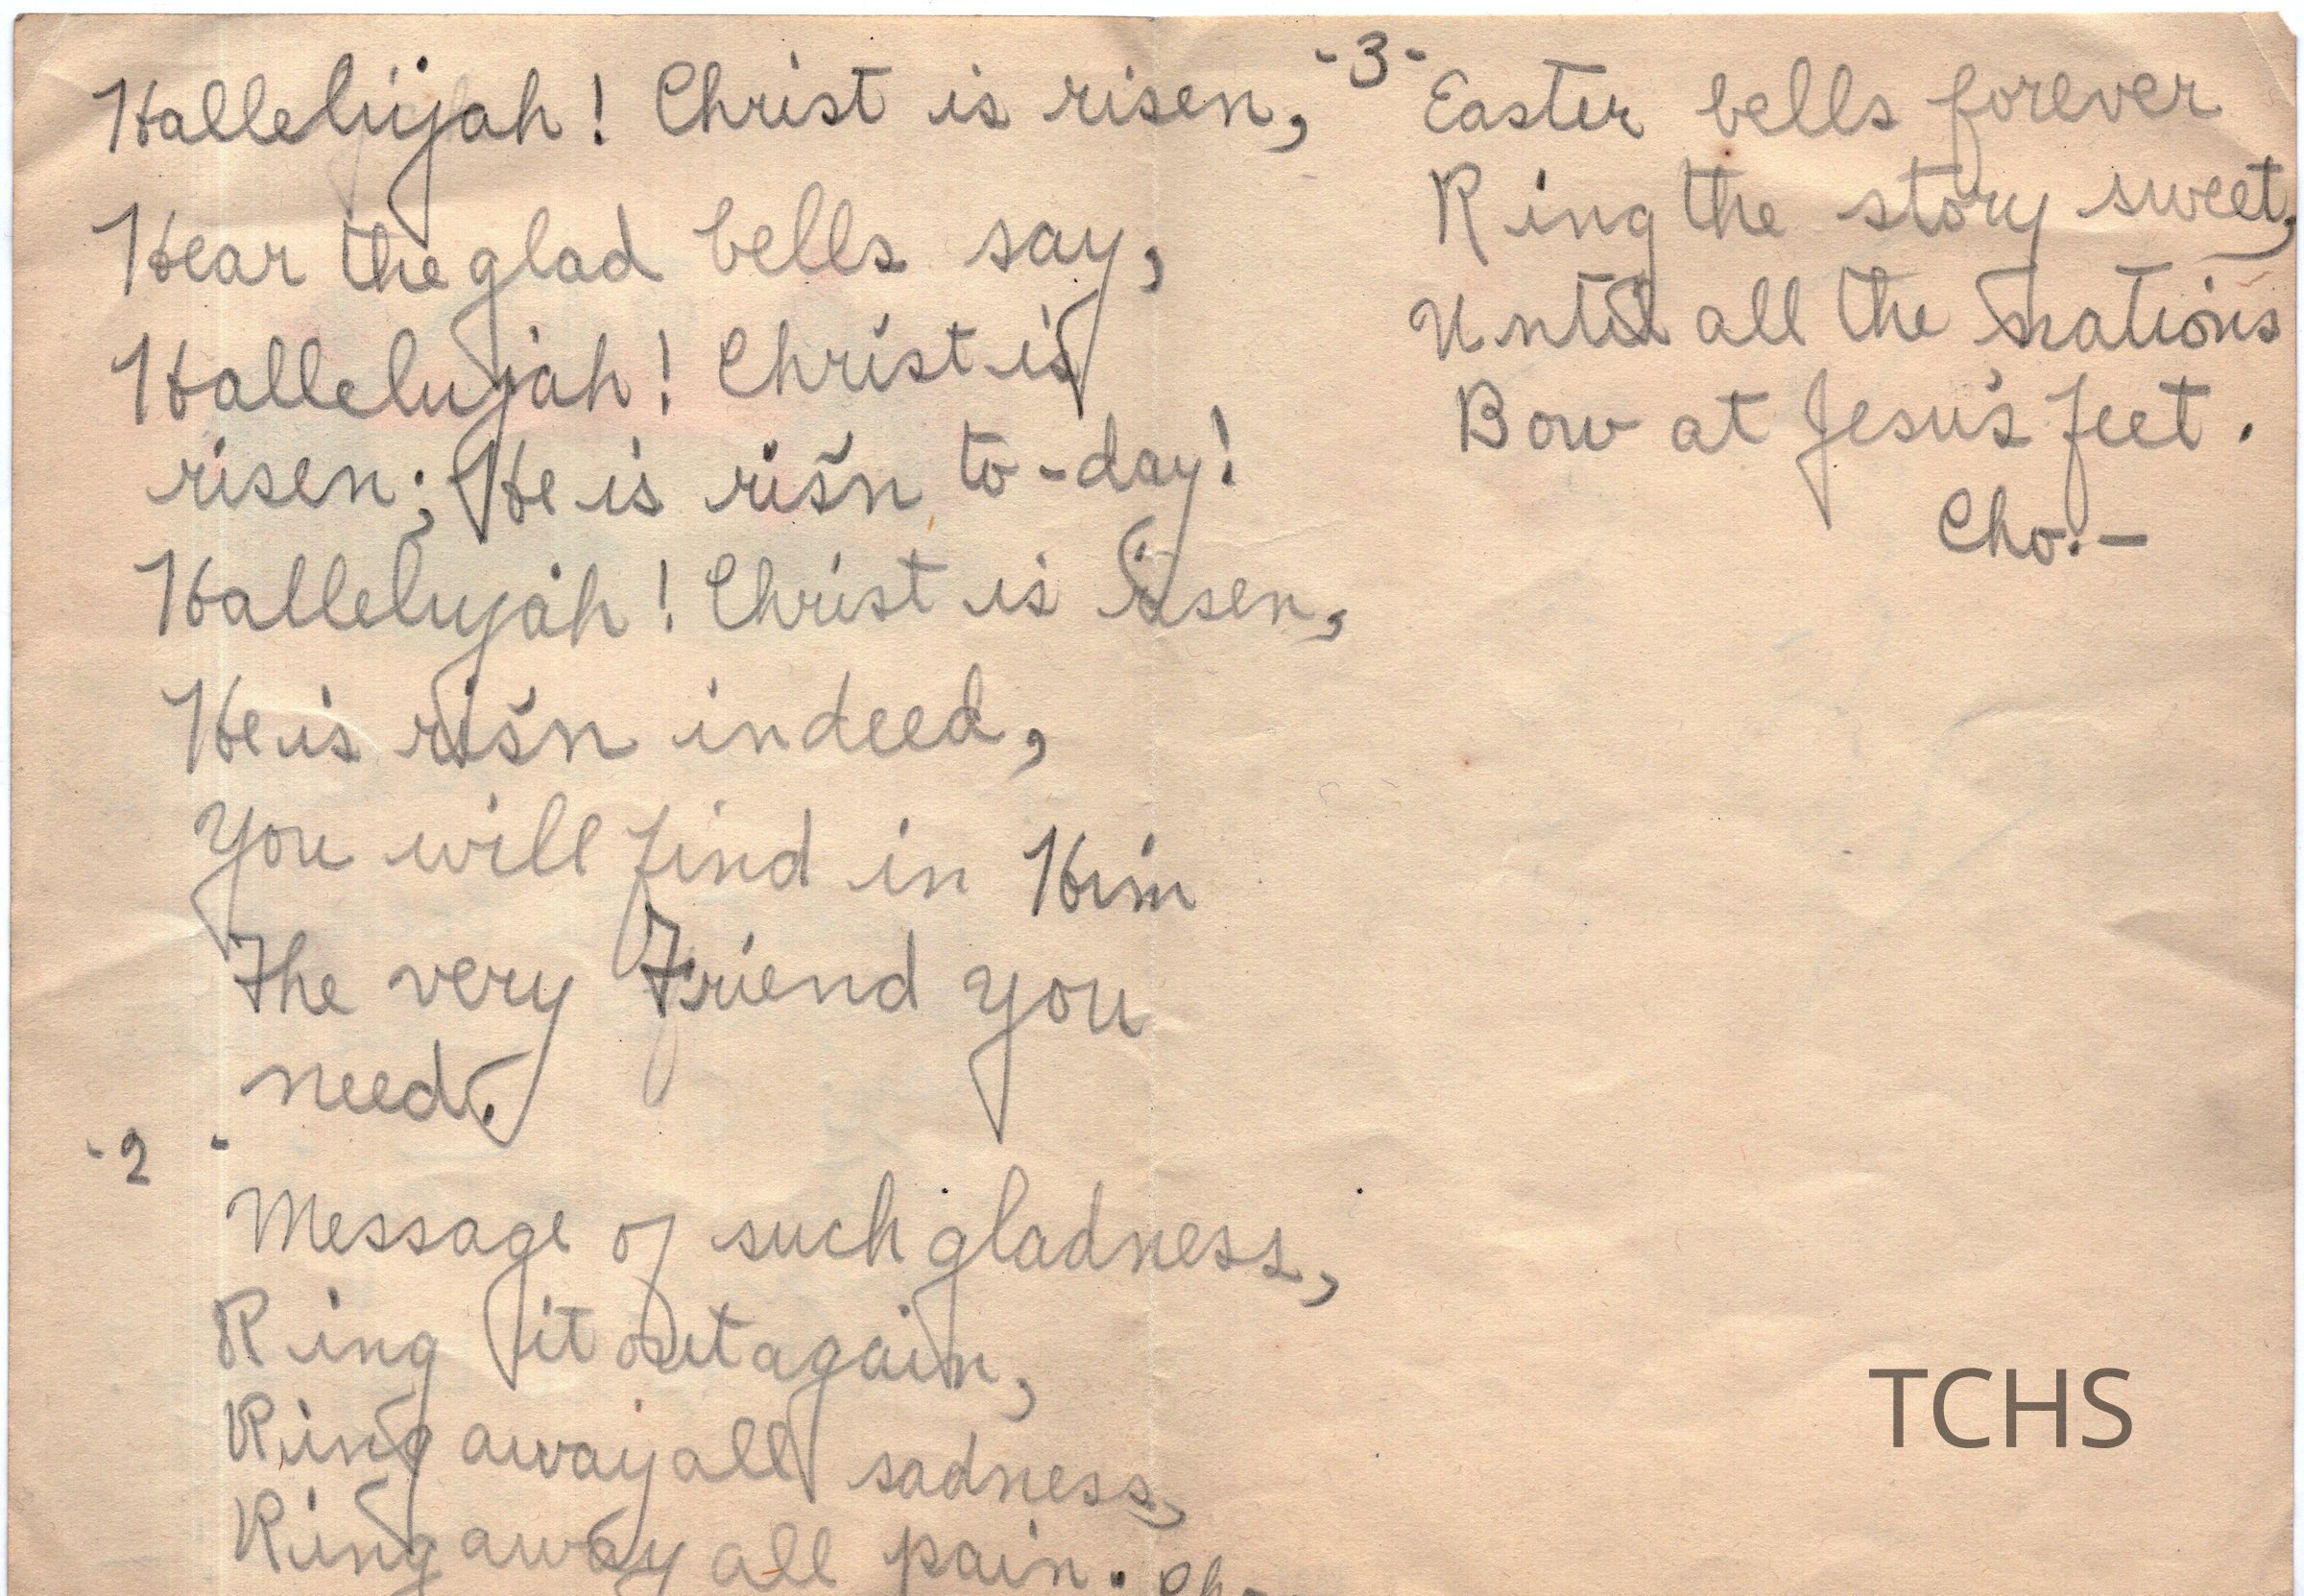 Hallelujah! Christ is risen,
Hear the glad bells say,
Hallelujah! Christ is
risen; He is ris'n to-day!
Hallelujah! Christ is risen,
He is ris'n indeed,
You will find in Him
The very Friend you
need.
-2-
Message of such gladness,
Ring it out again,
Ring away all sadness,
Ring away all pain. Cho-
-3-
Easter bells forever
Ring the story sweet,
Until all the nations
Bow at Jesus's feet.
Cho.-
TCHS